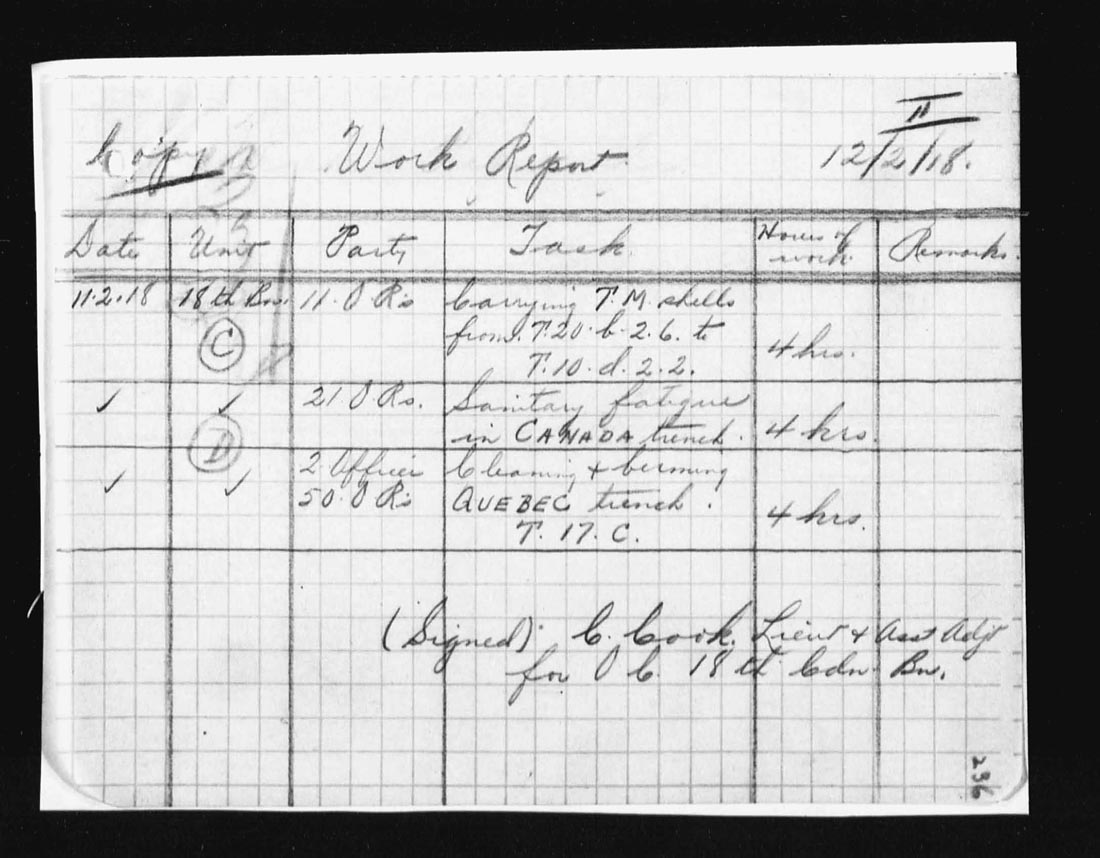 II
Copy Work Report 12/2/18.
Date Unit Party Task. Hours of work. Remarks.
11.2.18 18th Bn. 11. O Rs Carrying T.M. shells
from. T.20.b.2.6. to
C T.10.d.2.2. 4 hrs.
✓ ✓ 21 O.Rs. Sanitary fatigue
in CANADA trench. 4 hrs.
D
2 Officer Cleaning & berming
✓ ✓ 50. O Rs QUEBEC trench.
T. 17. C. 4 hrs.
(Signed) C. Cook. Lieut & Asst Adjt
for O C. 18th Cdn. Bn.
236